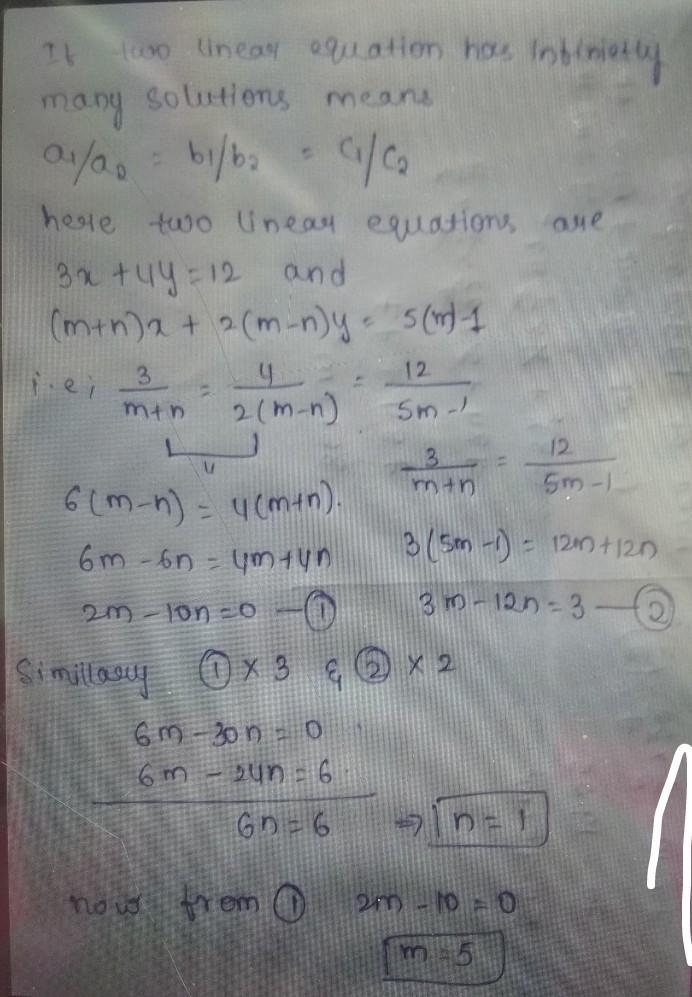 If two linear equation has Infinietly
many solutions means
a1/a2 = b1/b2 = C1/C2
here two linear equations are
3x + 4y = 12 and
(m+n)x + 2(m-n)y = 5(m)-1
i.e; 3/(m+n) = 4/(2(m-n)) = 12/(5m-1)
6(m-n) = 4(m+n).
6m - 6n = 4m+4n
2m - 10n = 0 — ①
3/(m+n) = 12/(5m-1)
3(5m-1) = 12m+12n
3m - 12n = 3 — ②
Simillarly ① × 3 & ② × 2
6m - 30n = 0
6m - 24n = 6
6n = 6 ⇒ n = 1
now from ① 2m - 10 = 0
m = 5